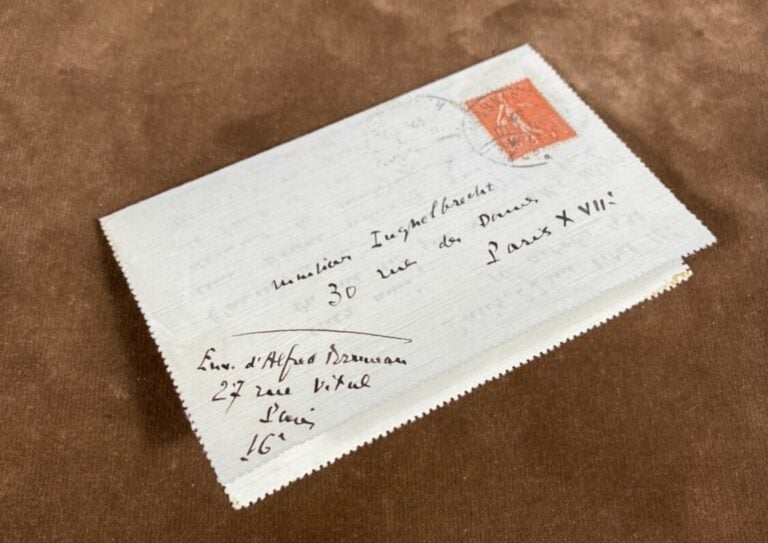 Monsieur Inghelbrecht
30 rue des Dames
Paris XVIIe
Env. d'Alfred Bruneau
27 rue Vital
Paris
16e